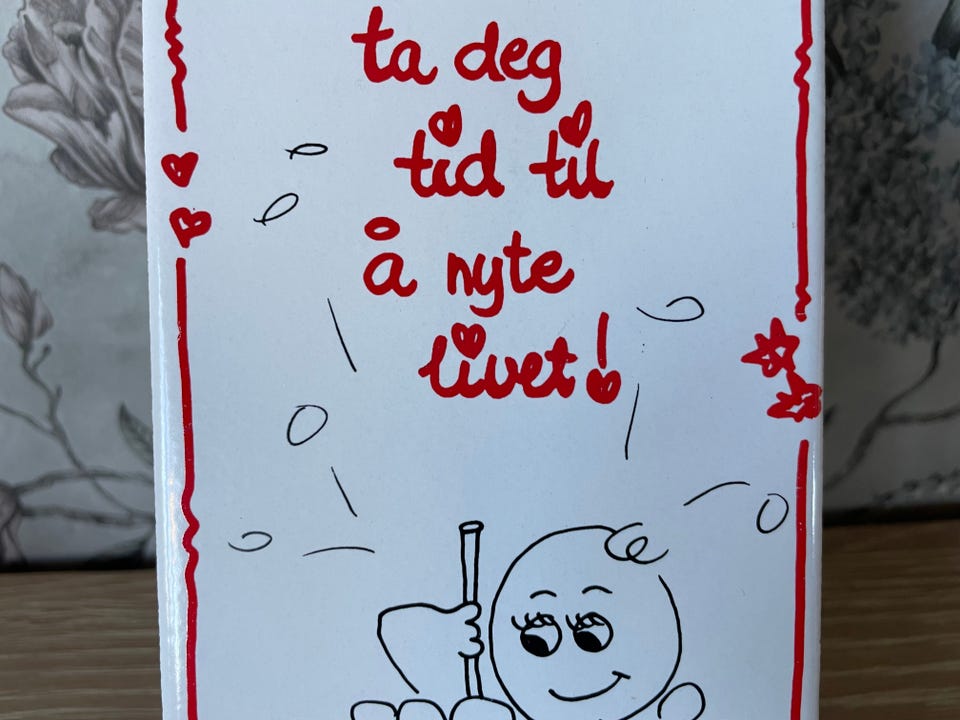 ta deg
tid til
å nyte
livet!